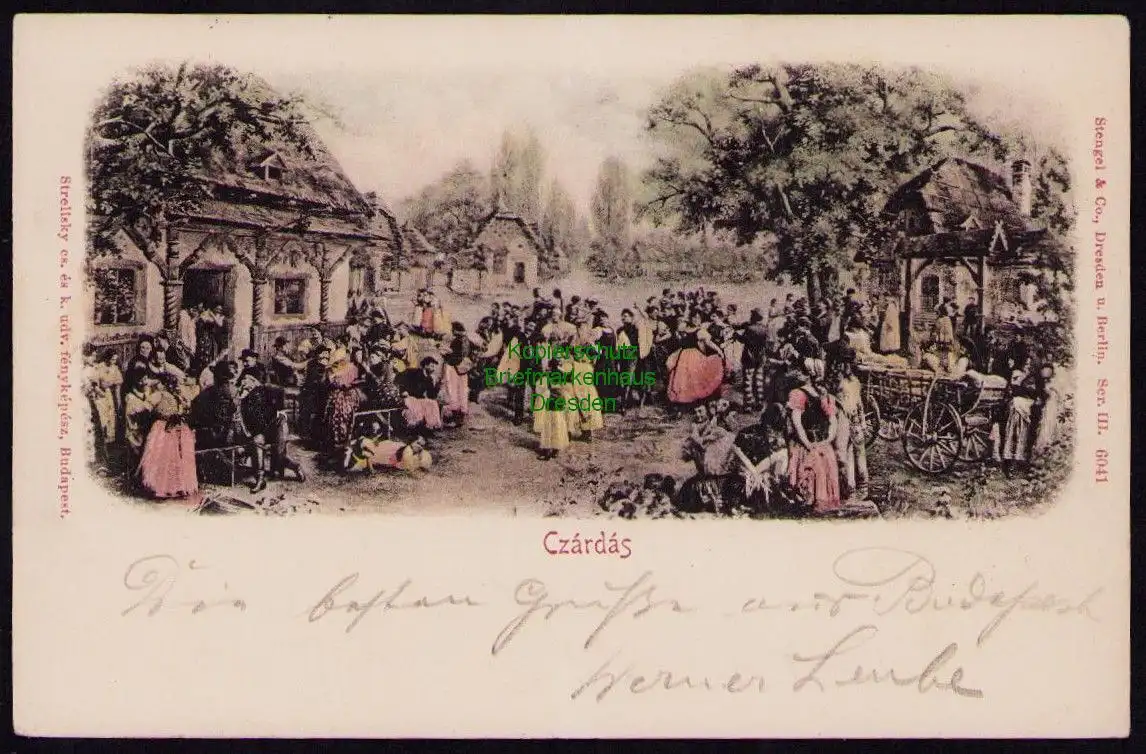 Strelisky cs. és k. udv. fényképész, Budapest.
Stengel & Co., Dresden u. Berlin. Ser. III. 6041
Kopierschutz
Briefmarkenhaus
Dresden
Czárdás
Die besten Grüße aus Budapest
Werner Leube